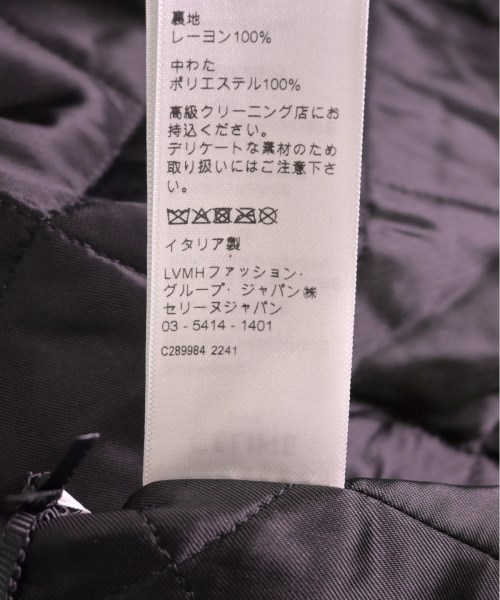 裏地
レーヨン100%
中わた
ポリエステル100%
高級クリーニング店にお
持込ください。
デリケートな素材のため
取り扱いにはご注意下さ
い。
イタリア製
LVMHファッション・
グループ・ジャパン㈱
セリーヌジャパン
03 - 5414 - 1401
C289984 2241